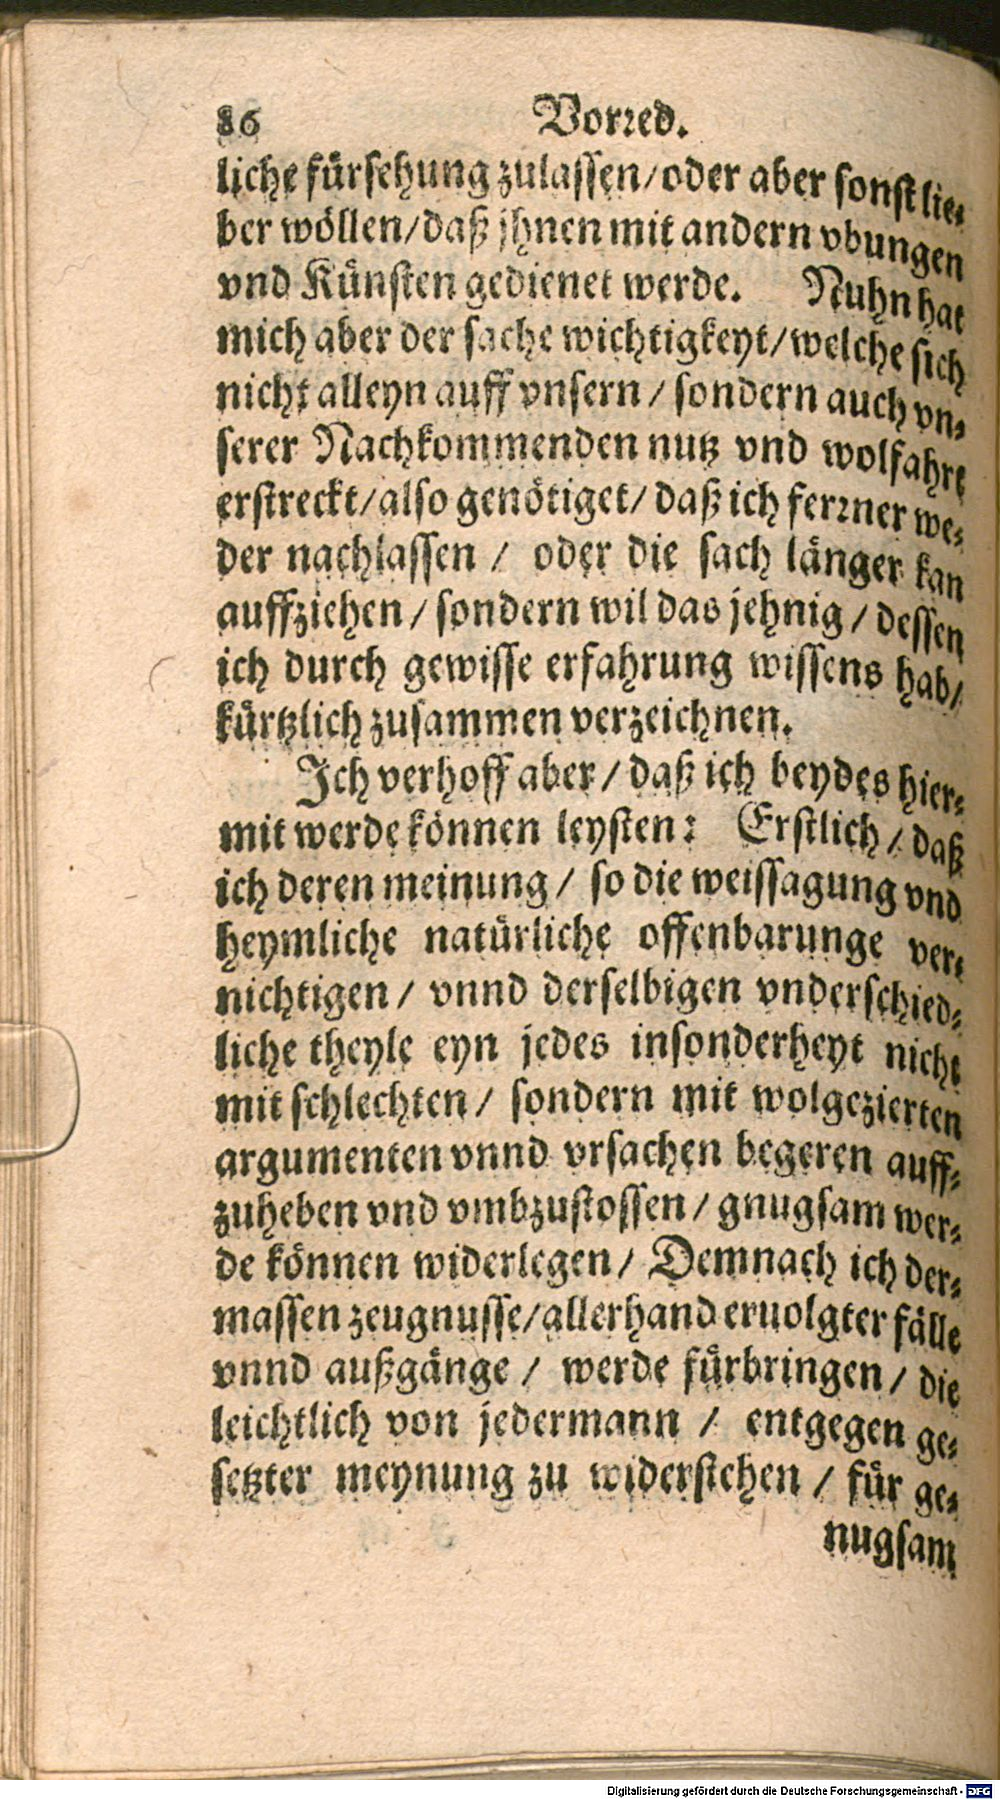 86 Vorred.
liche fürsehung zulassen/oder aber sonst lie-
ber wöllen/daß jhnen mit andern vbungen
vnd Künsten gedienet werde. Nuhn hat
mich aber der sache wichtigkeyt/welche sich
nicht alleyn auff vnsern / sondern auch vn-
serer Nachkommenden nutz vnd wolfahrt
erstreckt/also genötiget/ daß ich ferrner we-
der nachlassen / oder die sach länger kan
auffziehen / sondern wil das jehnig / dessen
ich durch gewisse erfahrung wissens hab/
kürtzlich zusammen verzeichnen.
Ich verhoff aber / daß ich beydes hier-
mit werde können leysten: Erstlich / daß
ich deren meinung / so die weissagung vnd
heymliche natürliche offenbarunge ver-
nichtigen / vnnd derselbigen vnderschied-
liche theyle eyn jedes insonderheyt nicht
mit schlechten / sondern mit wolgezierten
argumenten vnnd vrsachen begeren auff-
zuheben vnd vmbzustossen / gnugsam wer-
de können widerlegen / Demnach ich der-
massen zeugnusse/allerhand eruolgter fälle
vnnd außgänge / werde fürbringen / die
leichtlich von jedermann / entgegen ge-
setzter meynung zu widerstehen / für ge-
nugsam
Digitalisierung gefördert durch die Deutsche Forschungsgemeinschaft - DFG